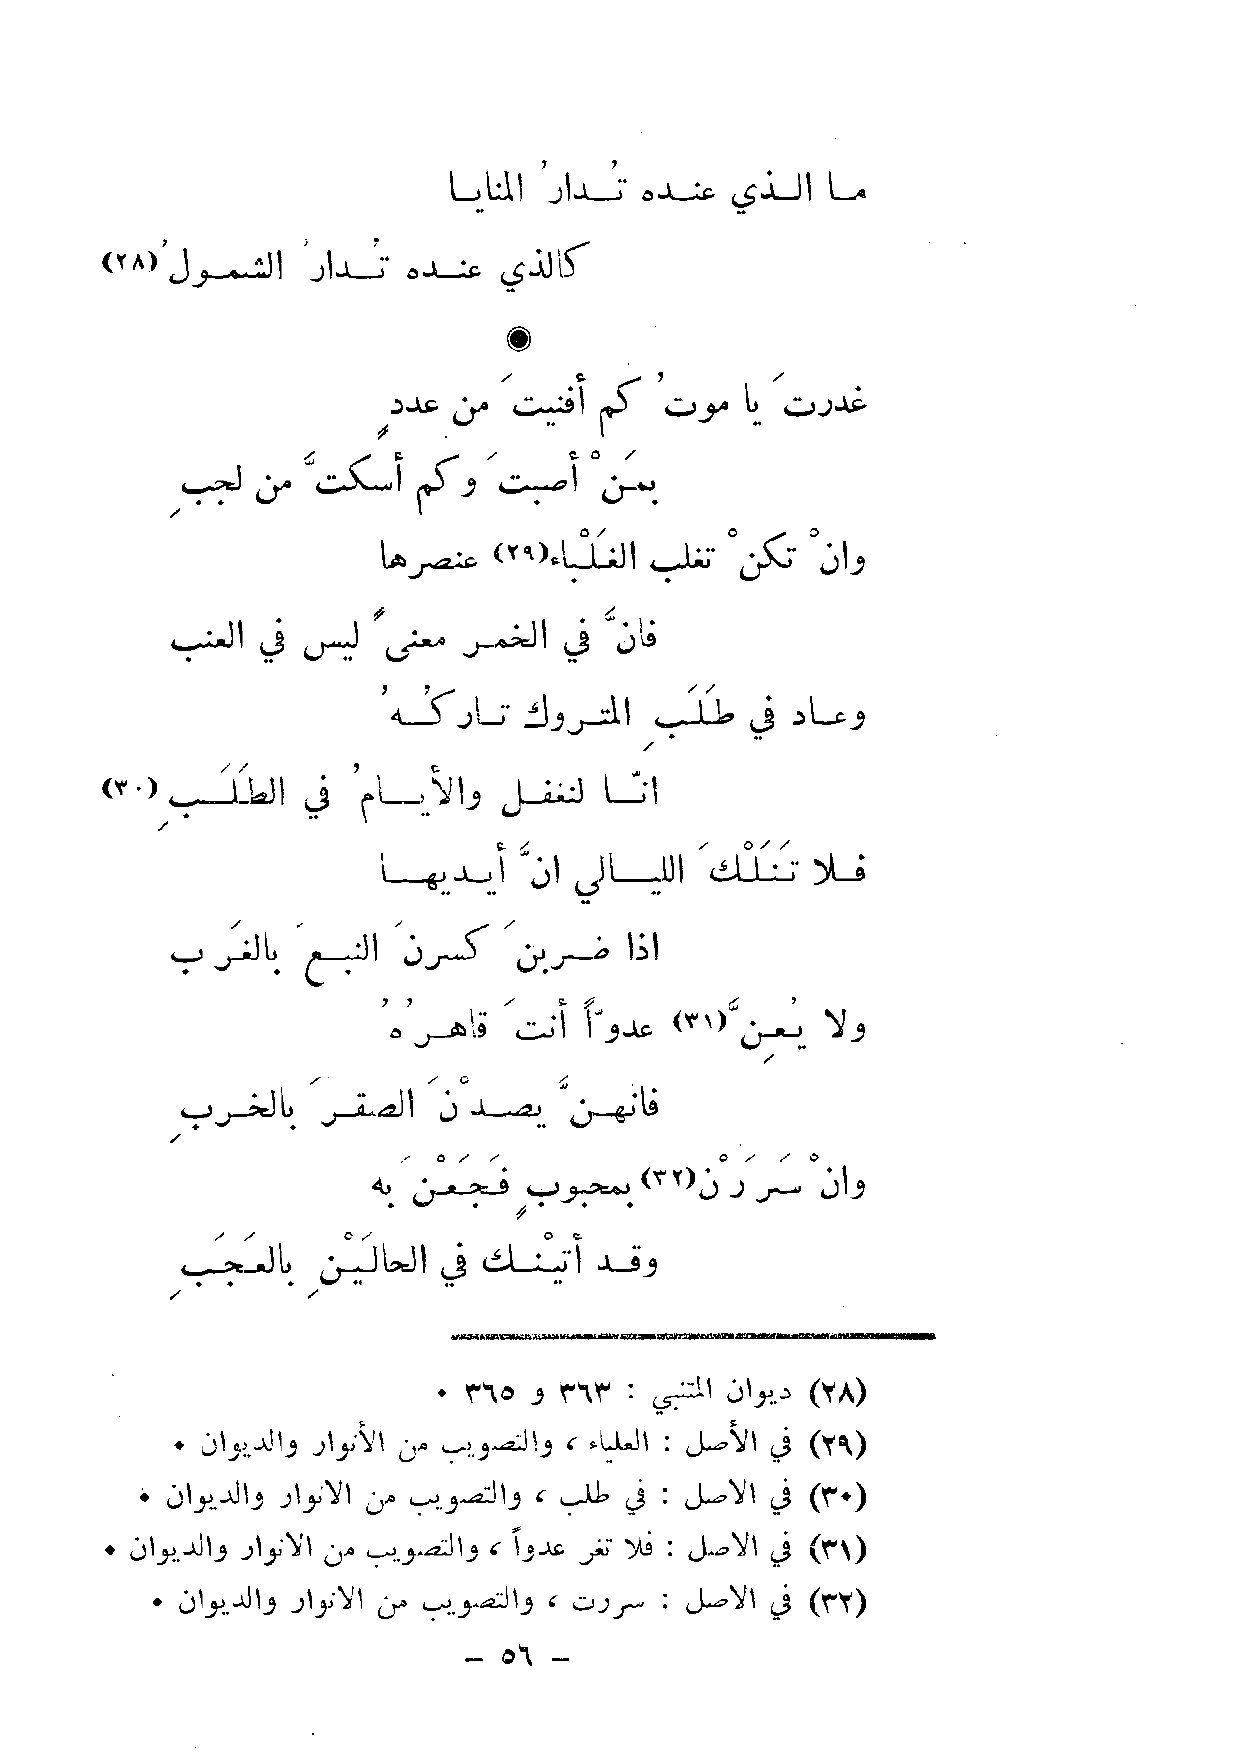 ما الذي عنده تُدارُ المنايا
كالذي عنده تُدارُ الشمولُ(٢٨)
غدرتَ يا موتُ كم أفنيتَ من عددٍ
بمَنْ أصبتَ وكم أسكتَّ من لجبِ
وانْ تكنْ تغلب الغَلْباء(٢٩) عنصرها
فانَّ في الخمر معنىً ليس في العنب
وعاد في طَلَبِ المتروك تاركُهُ
انّا لنغفل والأيامُ في الطَلَبِ(٣٠)
فلا تَنَلْكَ الليالي انَّ أيديها
اذا ضربنَ كسرنَ النبعَ بالغَرَب
ولا يُعِنَّ(٣١) عدوّاً أنتَ قاهرُهُ
فانهنَّ يصدْنَ الصقرَ بالخربِ
وانْ سَرَرْن(٣٢) بمحبوبٍ فَجَعْنَ به
وقد أتيْنك في الحالَيْنِ بالعَجَبِ
(٢٨) ديوان المتنبي : ٣٦٣ و ٣٦٥ ٠
(٢٩) في الأصل : العلياء ، والتصويب من الأنوار والديوان ٠
(٣٠) في الاصل : في طلب ، والتصويب من الانوار والديوان ٠
(٣١) في الاصل : فلا تغر عدواً ، والتصويب من الانوار والديوان ٠
(٣٢) في الاصل : سررت ، والتصويب من الانوار والديوان ٠
– ٥٦ –